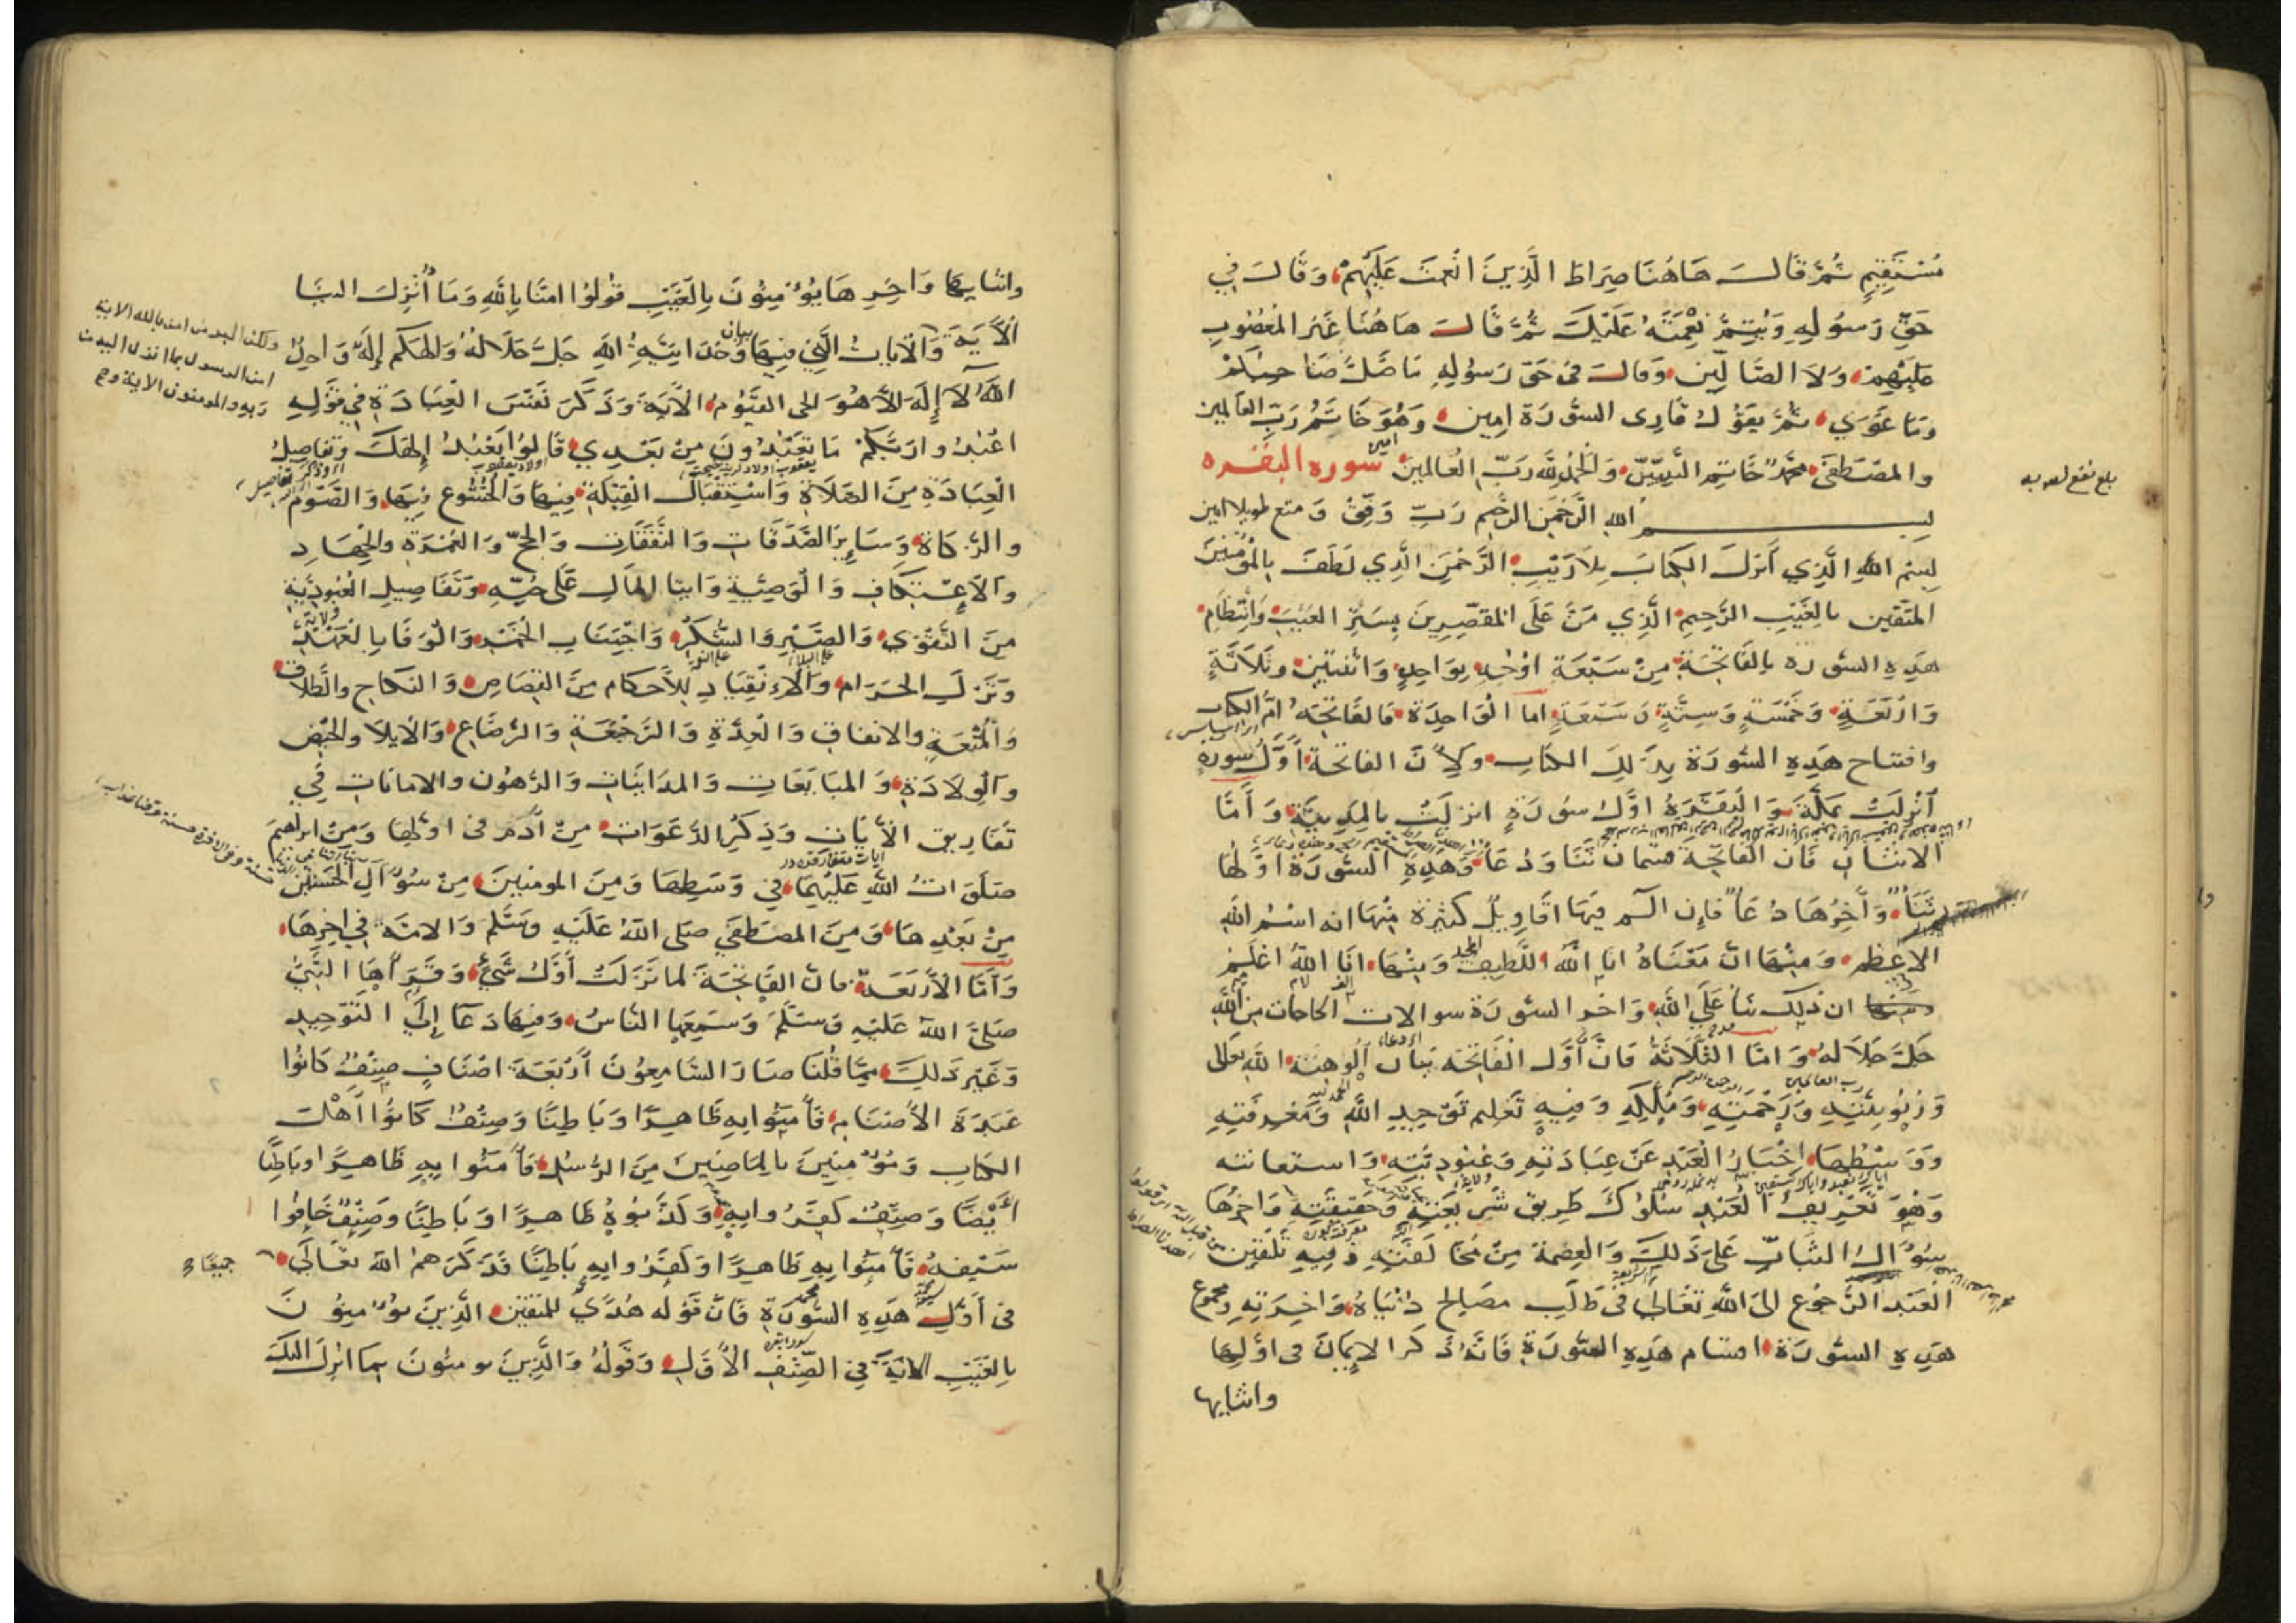 مُسْتَقِيمٍ ثُمَّ قَالَ هَاهُنَا صِرَاطَ الَّذِينَ انْعَمْتَ عَلَيْهِمْ وَقَالَ فِي
حَقِّ رَسُولِهِ وَيُتِمَّ نِعْمَتَهُ عَلَيْكَ ثُمَّ قَالَ هَاهُنَا غَيْرِ المَغْضُوبِ
عَلَيْهِمْ وَلَا الضَّالِّين وَقَالَ فِي حَقّ رَسُولِهِ مَا ضَلَّ صَاحِبُكُمْ
وَمَا غَوَى ثُمَّ يَقُولُ قَارِى السُّورَة امِين وَهُوَ خَاتَمُ رَبِّ العَالَمِين
وَالمُصْطَفَى مُحَمَّدٌ خَاتِمِ النَّبِيِّينَ وَالْحَمْدُ لِلَّهِ رَبِّ الْعَالَمِينَ امين سورة البقره
بلغ
بسم الله الرَّحْمَنِ الرَّحِيمِ رَبِّ وَفِّقْ وَمتع طويلا امين
بِسْمِ اللَّهِ الَّذِي أَنْزَلَ الكِتَابَ بِلَا رَيْبٍ الرَّحْمَنِ الَّذِي لَطَفَ بِالْمُؤْمِنِينَ
المُتَّقِين بِالغَيْبِ الرَّحِيمِ الَّذِي مَنَّ عَلَى المُقَصِّرِينَ بِسَتْرِ العَيْبِ وَانْتِظَام
هَذِهِ السُّورَة بِالفَاتِحَةِ مِنْ سَبْعَةِ اوْجُهٍ بِوَاحِدٍ وَاثْنَتَيْن وَثَلَاثَةٍ
وَأَرْبَعَةٍ وَخَمْسَةٍ وَسِتَّةٍ وَسَبْعَةٍ امَا الْوَاحِدَة فَالفَاتِحَة امّ الكتاب
وافتتاح هَذِهِ السُّورَة بِذَلِكَ الكِتَاب وَلِأَنَّ الفَاتِحَة أَوَّلُ سُورَةٍ
أُنْزِلَتْ بِمَكَّةَ وَالْبَقَرَةُ اوَّلُ سُورَةٍ انزلَتْ بِالمَدِينَةِ وَأَمَّا
الاثنَانِ فَان الفَاتِحَةَ قسمان ثَنَا وَدُعَا وَهَذِهِ السُّورَة اوَّلُهَا
ثَنَاءٌ وَآخِرُهَا دُعَاءٌ فَإِن الم فِيهَا اقَاوِيلٌ كَثِيرَة مِنْهَا انه اسْمُ اللَّهِ
الاعْظَم وَمِنْهَا انّ مَعْنَاهُ انَا اللَّهُ اللَّطِيف المجيد وَمِنْهَا انَا اللَّهُ اعْلَمُ
ان ذَلِكَ ثنا عَلَى اللَّهِ وَآخر السُّورَة سوالات الحاجات مِنَ اللَّهِ
جَلَّ جَلَالُهُ وَامَّا الثَّلَاثَةُ فَانَّ أَوَّل الْفَاتِحَة بَيَان أُلُوهِيَّة اللَّهِ تعالى
وَرُبُوبِيَّتِهِ وَرَحْمَتِهِ وَمُلْكِهِ وَفِيهِ تَعْلِيم تَوْحِيدِ اللَّهِ وَمَعْرِفَتِهِ
وَوَسْطُهَا إِخْبَارُ الْعَبْدِ عَنْ عِبَادَتِهِ وَعُبُودِيَّتِهِ وَاستعانته
وَهُوَ تَعْرِيفُ الْعَبْدِ سُلُوكَ طَرِيق شَرِيعَتِهِ وَحَقِيقَتِهِ وَآخِرُهَا
سُؤَالُ الثَّبَاتِ عَلَى ذَلِكَ وَالعِصْمَةِ مِنْ مُخَالَفَتِهِ وَفِيهِ تَلْقِين
الْعَبْد الرُّجُوع الَى اللَّهِ تَعَالَى فِي طَلَب مَصَالِح دُنْيَاهُ وَآخِرَتِهِ ومجموع
هَذِهِ السُّورَة اقسام هَذِهِ السُّورَةِ فَانَّهُ ذَكَرَ الإِيمَانَ فِي اوَّلِهَا
واثنايها
واثنايها وَآخِرِهَا يُؤْمِنُونَ بِالْغَيْبِ قُولُوا امَنَّا بِاللَّهِ وَمَا أُنْزِلَ الينَا
الْآيَةَ وَالآيَات الَّتِي فِيهَا بيان وَحْدَانِيَّةِ اللَّهِ جَلَّ جَلَالُهُ وَالهُكُم إِلَهٌ وَاحِدٌ
ولكن البر من امن بالله الاية
امن الرسول بما انزل اليه من
ربه والمومنون الاية
اللَّهُ لَا إِلَهَ إِلَّا هُوَ الحى القَيُّومُ الْآيَة وَذَكَرَ نَفْسَ الْعِبَادَةِ فِي قَوْلِهِ
اعْبُدُوا رَبَّكُمْ مَا تَعْبُدُونَ مِنْ بَعْدِي قَالُوا نَعْبُدُ إِلَهَكَ وَتَفَاصِيلُ
الْعِبَادَةِ مِنَ الصَّلَاةِ وَاسْتِقْبَالِ الْقِبْلَةِ فِيهَا وَالْخُشُوعِ فِيهَا وَالصَّوْمِ
وَالزَّكَاة وَسَايِر الصَّدَقَاتِ وَالنَّفَقَاتِ وَالحَجّ وَالعُمْرَةِ وَالْجِهَادِ
وَالاعْتِكَافِ وَالْوَصِيَّةِ وَايتَا المَالِ عَلَى حُبِّهِ وَتَفَاصِيلِ الْعُبُودِيَّةِ
مِنَ التَّقْوَى وَالصَّبْرِ وَالشُّكْرِ وَاجْتِنَابِ الْخَمْر وَالْوَفَا بِالْعَهْدِ
وَتَرْكِ الحَرَامِ وَالِانْقِيَادِ لِلْأَحْكَامِ مِنَ القِصَاصِ وَالنِّكَاحِ وَالطَّلَاق
وَالْمُتْعَةِ وَالانفَاقِ وَالْعِدَّةِ وَالرَّجْعَةِ وَالرِّضَاعِ وَالايلَا وَالحَيْض
وَالْوِلَادَةِ وَالمُبَايَعَاتِ وَالمُدَايَنَاتِ وَالرُّهُون وَالامَانَاتِ فِي
تَفَارِيق الآيَاتِ وَذِكْرِ الدَّعَوَاتِ مِنْ آدَمَ فِي اوَّلِهَا وَمِنْ ابْرَاهِيمَ
صَلَوَاتُ اللَّهِ عَلَيْهِمَا فِي وَسَطِهَا وَمِنَ المومنين مِنْ سُؤَالِ الْحَسَنَتَيْن
مِنْ بَعْدِهَا وَمِنَ المُصْطَفَى صَلَّى اللَّهُ عَلَيْهِ وَسَلَّمَ وَالامَّة فِي آخِرِهَا
وَأَمَّا الْأَرْبَعَة فَان الفَاتِحَةَ لما نَزَلَتْ أَوَّلَ شَيْءٍ وَقَرَأَهَا النَّبِيُّ
صَلَّى اللَّه عَلَيْهِ وَسَلَّمَ وَسَمِعَهَا النَّاسُ وَفِيهَا دَعَا إِلَى التَّوْحِيدِ
وَغَيْرِ ذَلِكَ مِمَّا قُلْنَا صَارَ السَّامِعُونَ أَرْبَعَةَ اصْنَافٍ صِنْفٌ كَانُوا
عَبَدَةَ الأَصْنَام فَآمَنُوا بِهِ ظَاهِرًا وَبَاطِنًا وَصِنْفٌ كَانُوا أَهْلَ
الكِتَاب وَمُؤْمِنِينَ بِالمَاضِينَ مِنَ الرُّسُل فَآمَنُوا بِهِ ظَاهِرًا وَبَاطِنًا
أَيْضًا وَصِنْفٌ كَفَرُوا بِهِ وَكَذَّبُوهُ ظَاهِرًا وَبَاطِنًا وَصِنْفٌ خَافُوا
سَيْفَهُ فَآمَنُوا بِهِ ظَاهِرًا وَكَفَرُوا بِهِ بَاطِنًا قَدْ ذَكَرَهُمُ اللَّه تَعَالَى جميعًا
فِي أَوَّلِ هَذِهِ السُّورَةِ فَانَّ قَوْلَهُ هُدًى لِلْمُتَّقِين الَّذِينَ يُؤْمِنُونَ
بِالْغَيْبِ الْآيَة فِي الصِّنْفِ الْأَوَّلِ وَقَوْلُهُ وَالَّذِينَ يومنُونَ بِمَا انْزِلَ الَيْكَ